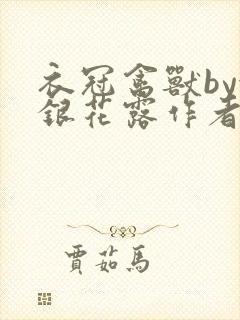 衣冠禽獸by
銀花露作者
賈茹馬